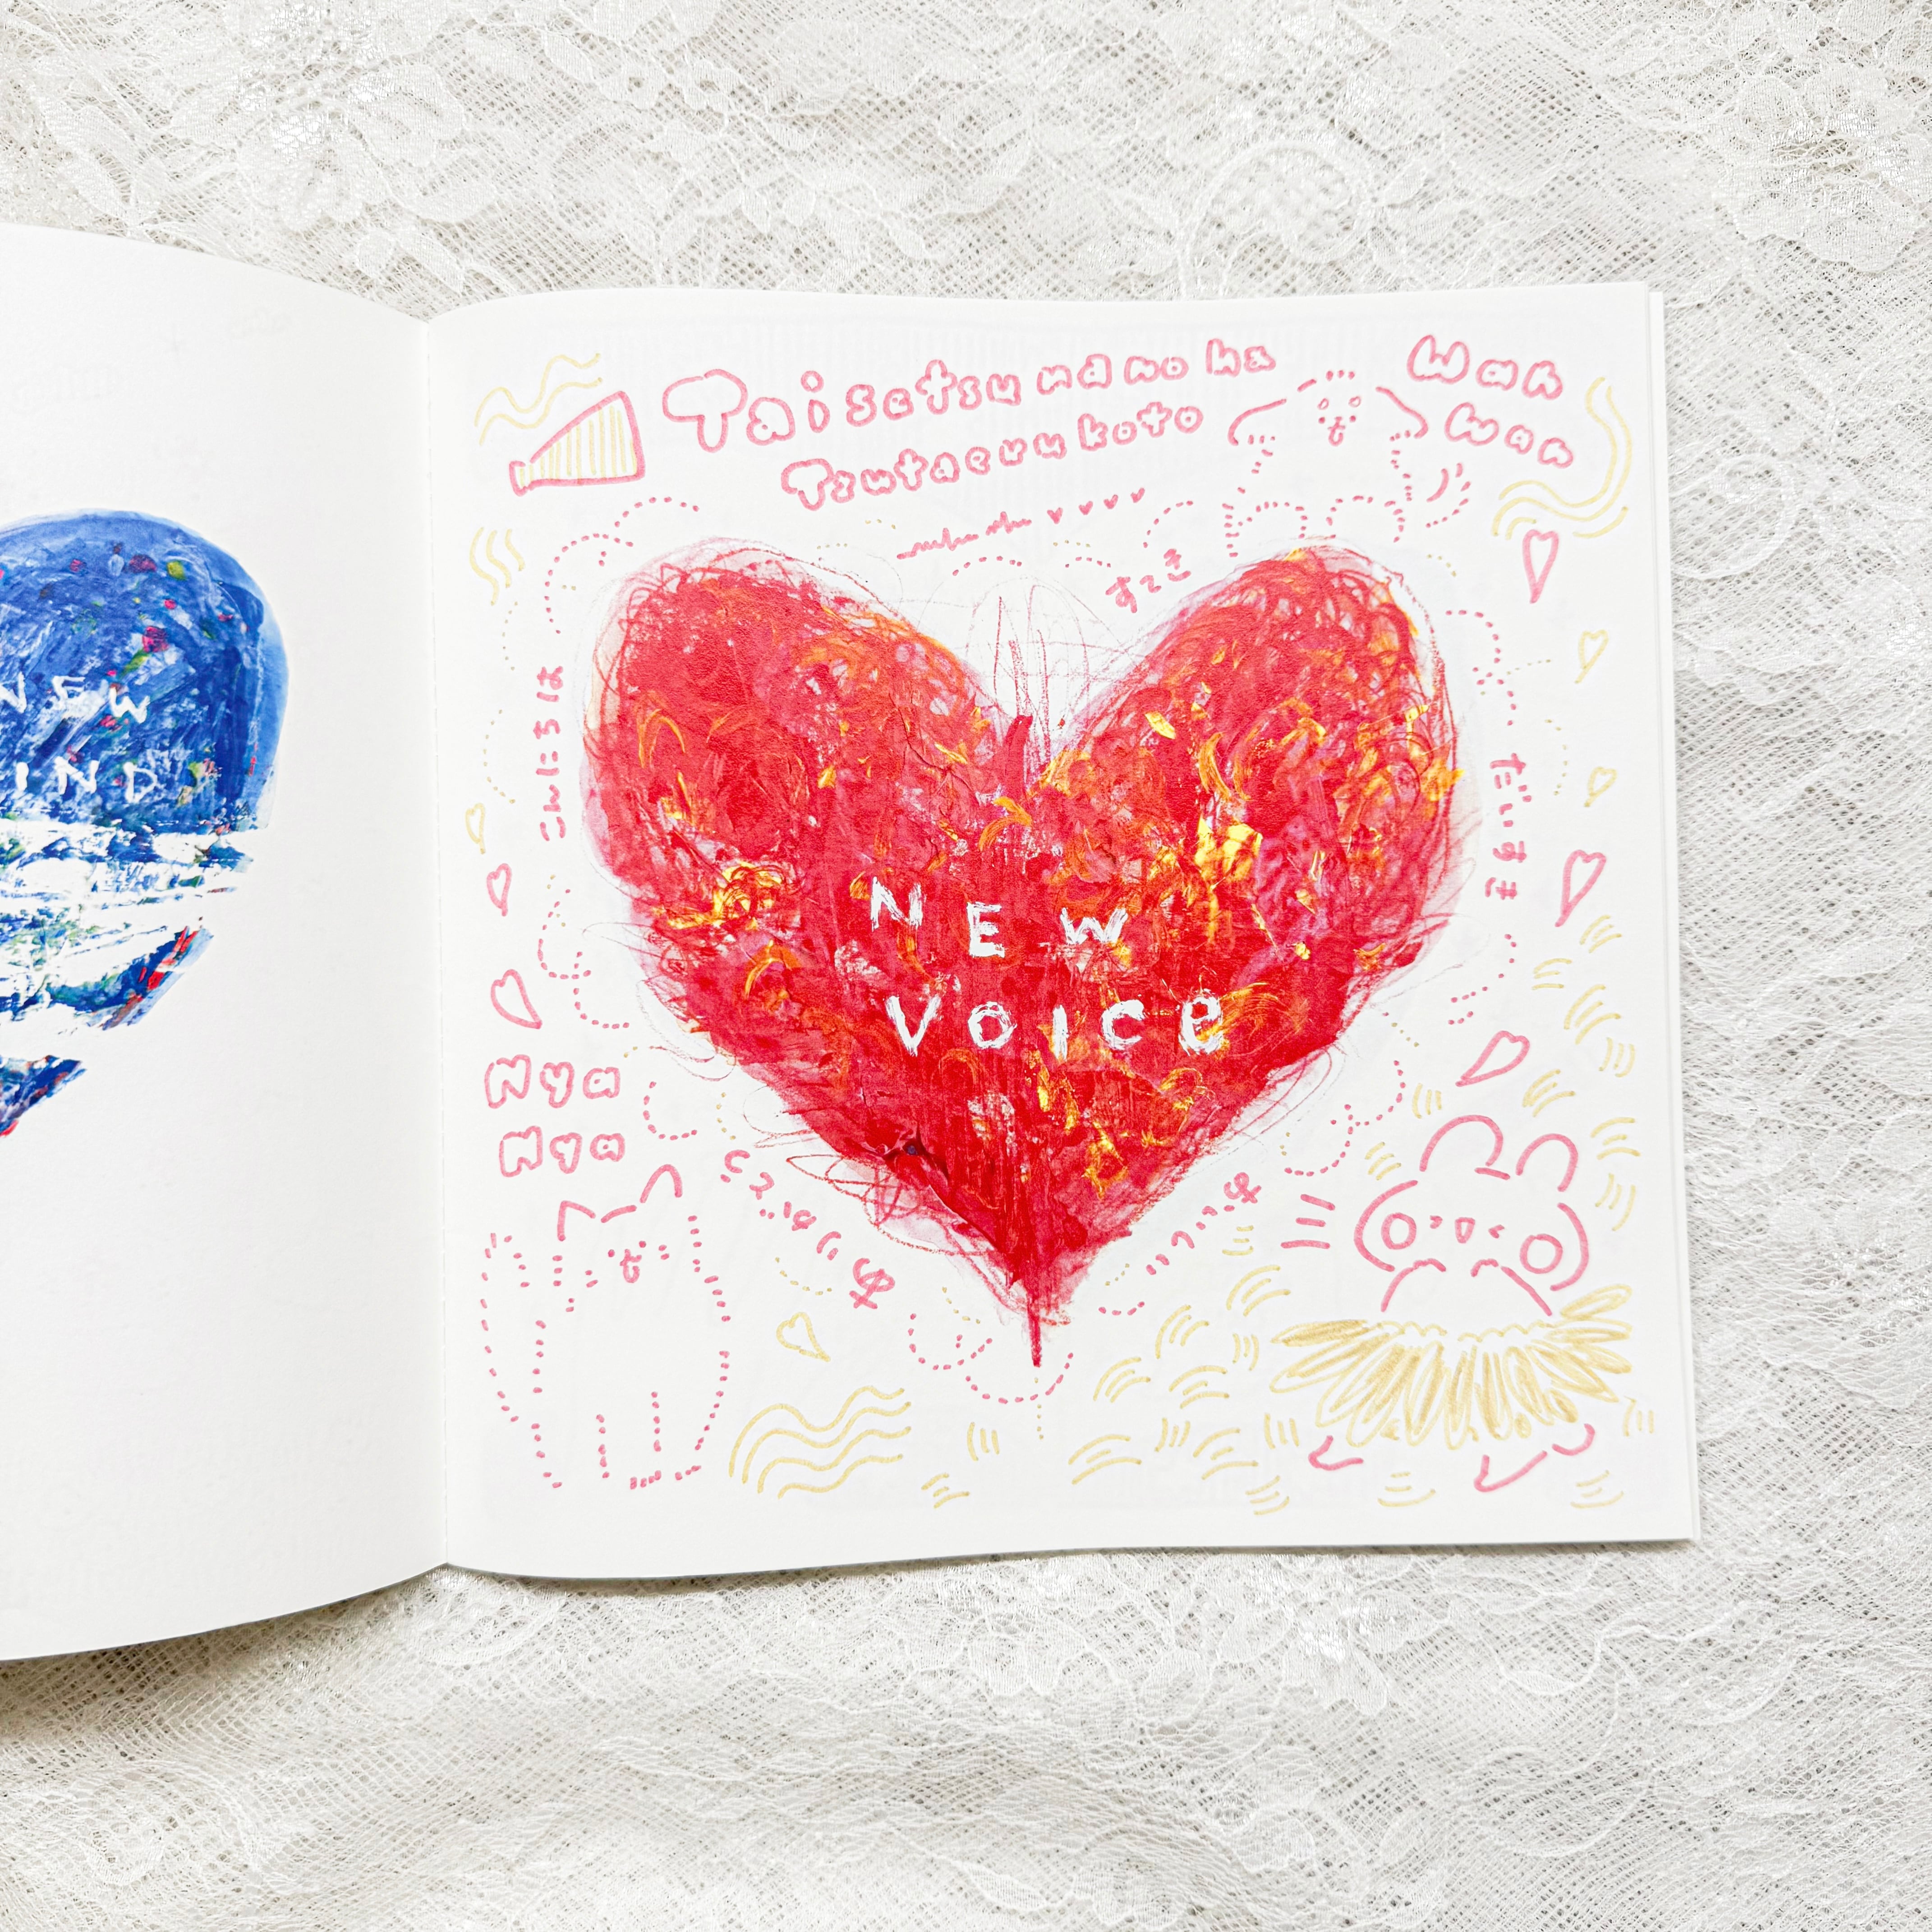 NEW
IND
Taisetsu nano ha
Tsutaeru koto
Wan
Wan
すてき
こんにちは
だいすき
NEW
VOICe
Nya
Nya
ありがとう